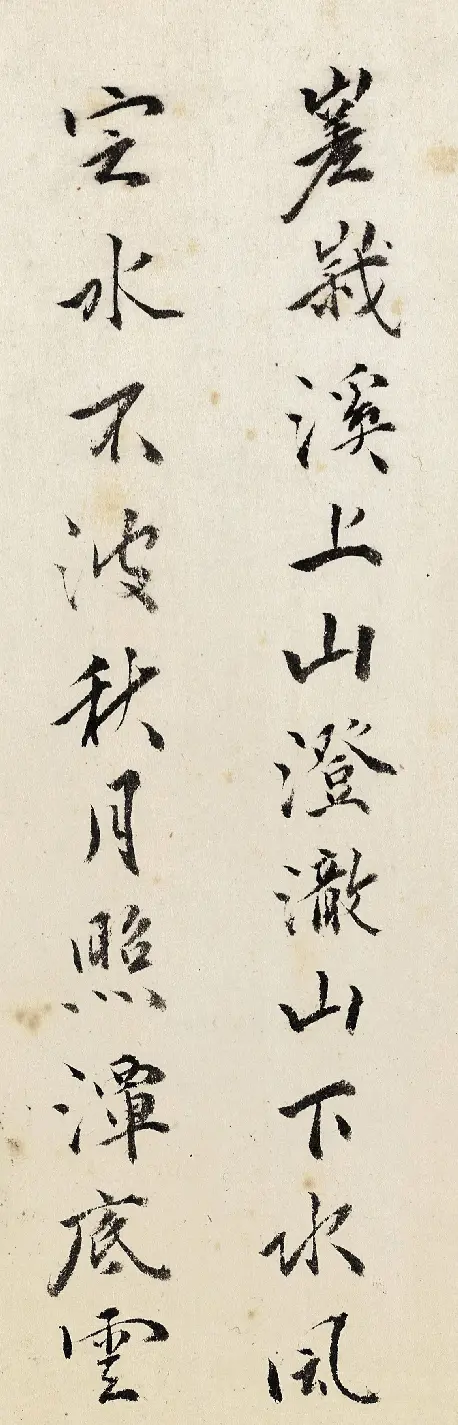 嵳峩溪上山澄澈山下水風
定水不波秋月照潭底雲